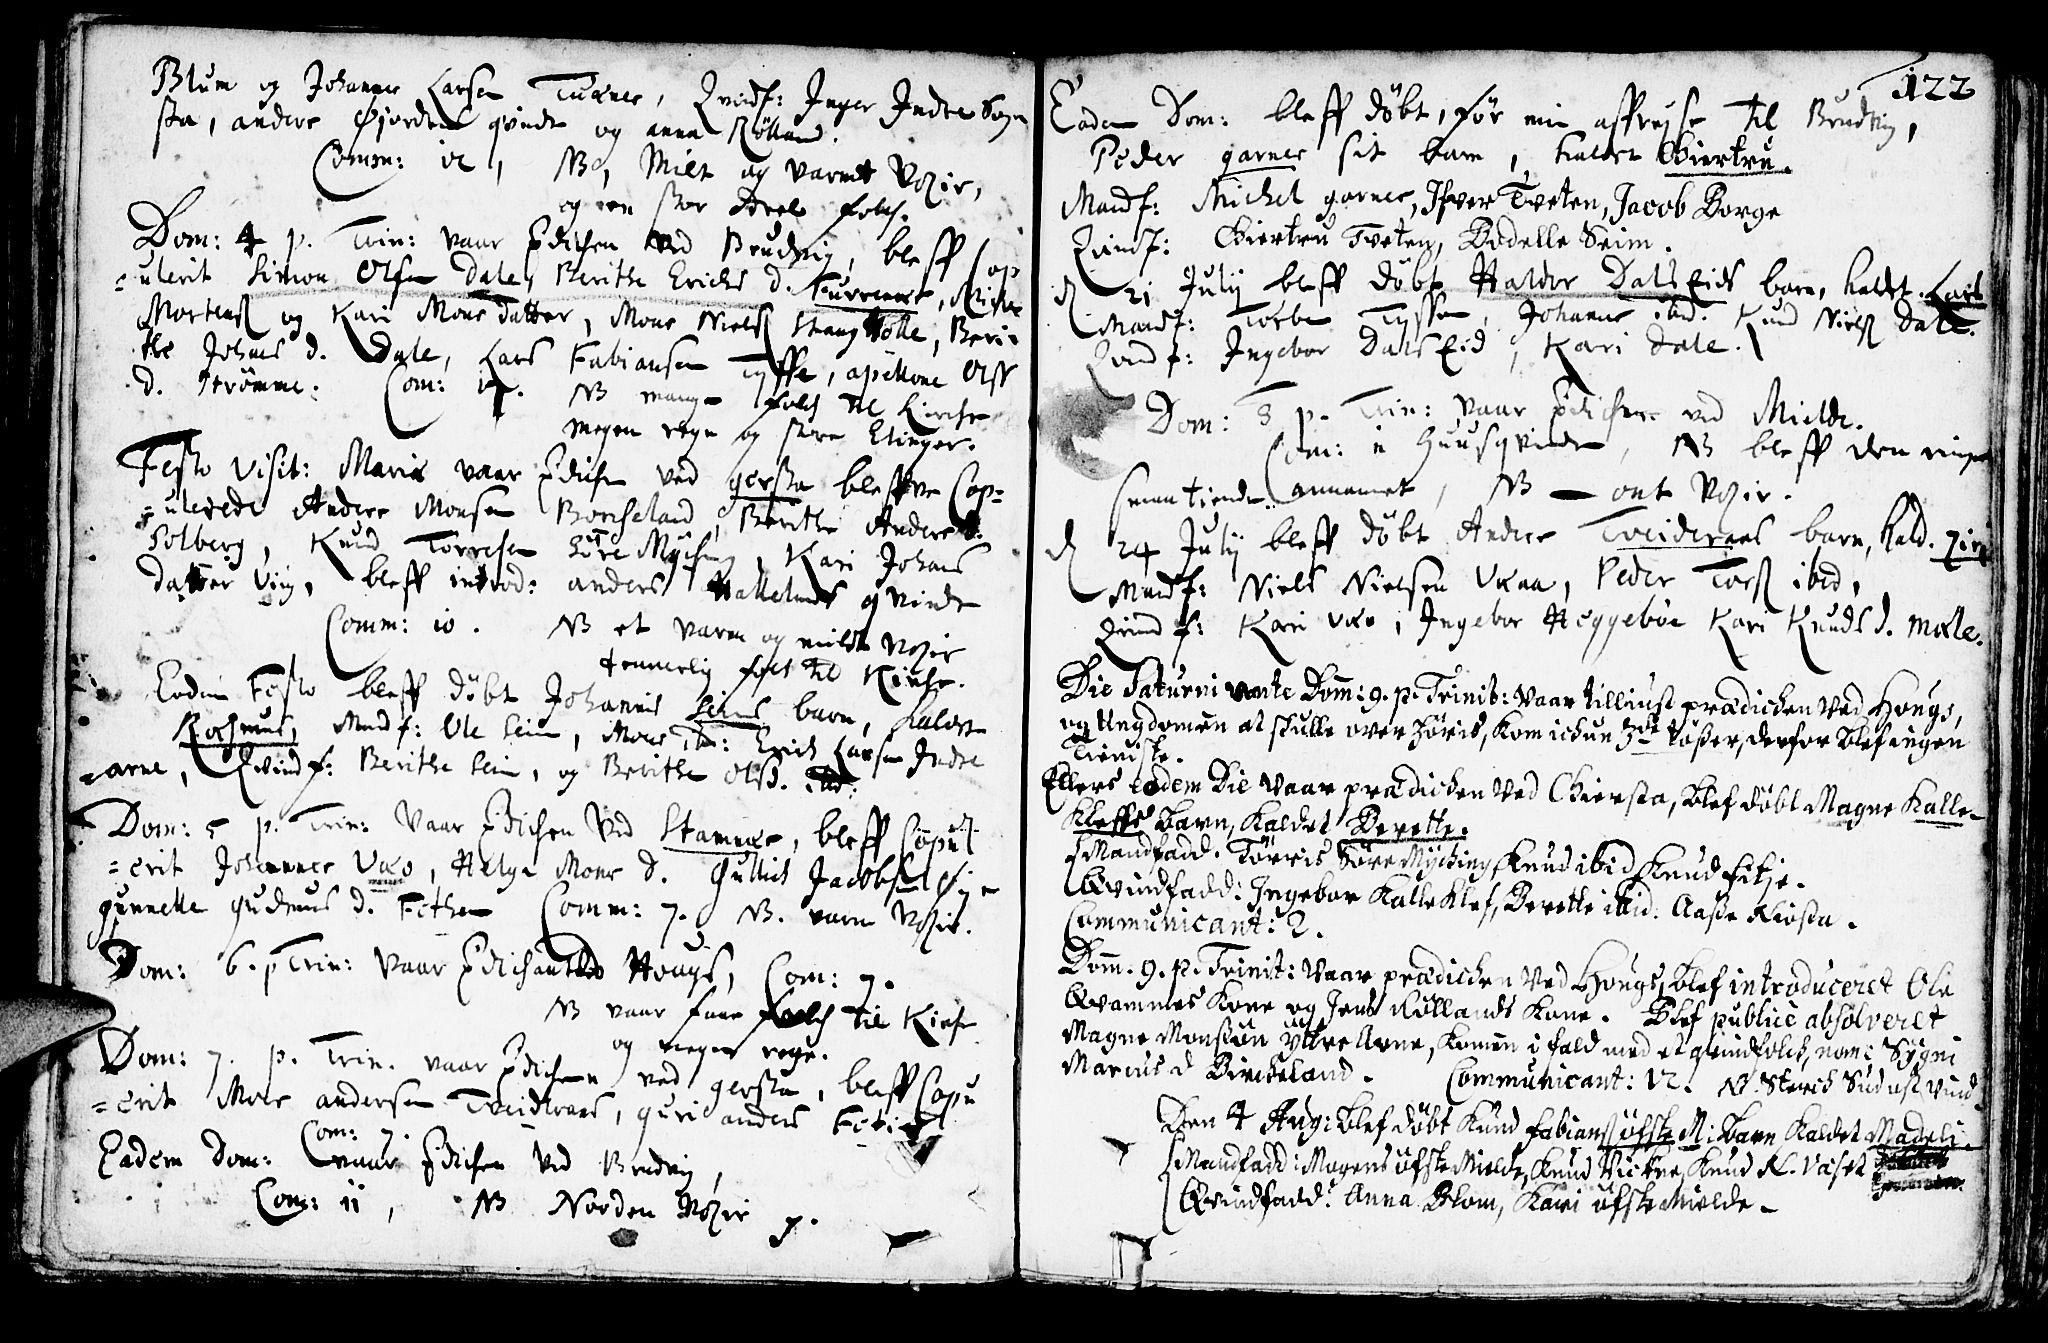 Blum og Johannes Larsen Tuenes, Qvindf: Inger Indre Sogn
sta, anders Gjordens qvinde og anna Rölland.
Comm: 12, NB, Milt og varmt Vejir,
og een stor deel folch.
Dom: 4 p. Trin: vaar Prædichen ved Brudvig, bleff Cop
=ulerit Simon Olsen Dale, Berithe Erichs d. Furrenes,
Mortens og Kari Mons Datter, Mons Niels StangHolle, Beri
the Johans d. Dale, Lars Fabiansen Tysse, apellone Olss
d. Strømme. Com: 14. NB mange folch til Kirche
megen regn og store Elinger.
Festo Visit: Mariæ vaar Prædichen ved gersta bleffve Cop=
=ulerede Anders Monsen Borcheland, Berithe Anders d.
Solberg, Knud Torresen Søre Myching, Kari Johans
datter Viig, bleff introd: anders Hallelands qvinde
Comm: 10. NB et varm og mildt Vejir
temmelig folch til Kirche.
Eodem Festo bleff döbt Johannis Seims barn, kaldet
Rasmus, Mandf: Ole Seim, Mons ibd: Erich Larsen Indre
=arne, Qvindf: Berithe Seim, og Berithe Olss. ibd:
Dom: 5 p. Trin: Vaar Prædichen Ved Stamnes, bleff Copul
=erit Johannes Vaxo, Helge Mons d. Gullich Jacobsen
gunnelle gudmus d. Fothen Comm: 7. NB. varm Vejir.
Dom: 6. p Trin: vaar Prædichen ved Hougs, Com: 7.
NB vaar faae folch til Kirche
og megen regn.
Dom: 7. p. Trin. vaar Prædichen ved gersta, bleff Copu
=erit Mons andersen Tveideraas, guri anders
Com: 7.
Eadem Dom: vaar Prædichen ved Brudvig,
Com: 11, NB Norden Vejir
122
Eadem Dom: bleff döbt, før min affrejse til Brudvig,
Peder garnes sit barn, kaldet Giertru.
Mandf: Michel garnes, Ifver Tveten, Jacob Borge
Qvindf: Giertru Tveten, Bodelle Seim.
d 21 July bleff döbt Haldor DalsEids barn, kaldt. Lars
Mandf: Torben Tyssen, Johannes ibd. Knud Niels Dale.
Qvindf: Ingebor DalsEid, Kari Dale.
Dom: 8 p. Trin: vaar Prædichen ved Mielde.
Com: 1 huusqvinde, NB bleff den ringe
smaa tiende annamet, NB — ont Vejir.
d 24 July bleff döbt Anders Tveideraas barn, kald.
Mandf: Niels Nielsen Vxaa, Peder Tors ibid,
Qvindf: Kari vxo, Ingebor Heggebøe Kari Knuds d. Mæle.
Die Saturni ante Dom: 9. p. Trinit: vaar tilliust prædichen ved Hougs,
og Ungdomen at skulle overhöris, kom ichun 3de Tößer, derfor blef ingen
Tieniste.
Ellers eodem Die vaar prædichen ved Giersta, blef döbt Magne Kalle-
kleffs barn, kaldet Berette.
Mandfadd. Törris Söre Myching Knud ibid Knud Fitje.
Qvindfadd: Ingebor Kalleklef, Berette ibid: Aaße Riösta.
Communicant: 2.
Dom. 9. p. Trinit: vaar prædichen ved Hougs, blef introduceret Ole
Qvammes Kone og Jens Rullands Kone. Blef publicè absolveret
Magne Monsson Yttre Arne, komen i fald med et qvindfolch, nom: Sygni
Marcus d Bircheland. Communicant: 12. NB. Sterch Sudust Vind.
Den 4 Aug: blef döbt Knud Fabians öfste M: barn kaldet Madeli-
Mandfadd: Mogens öfste Mielde, Knud Vickne, Knud N. Vaset
Qvindfadd: Anna Blom, Kari öfste Mielde.